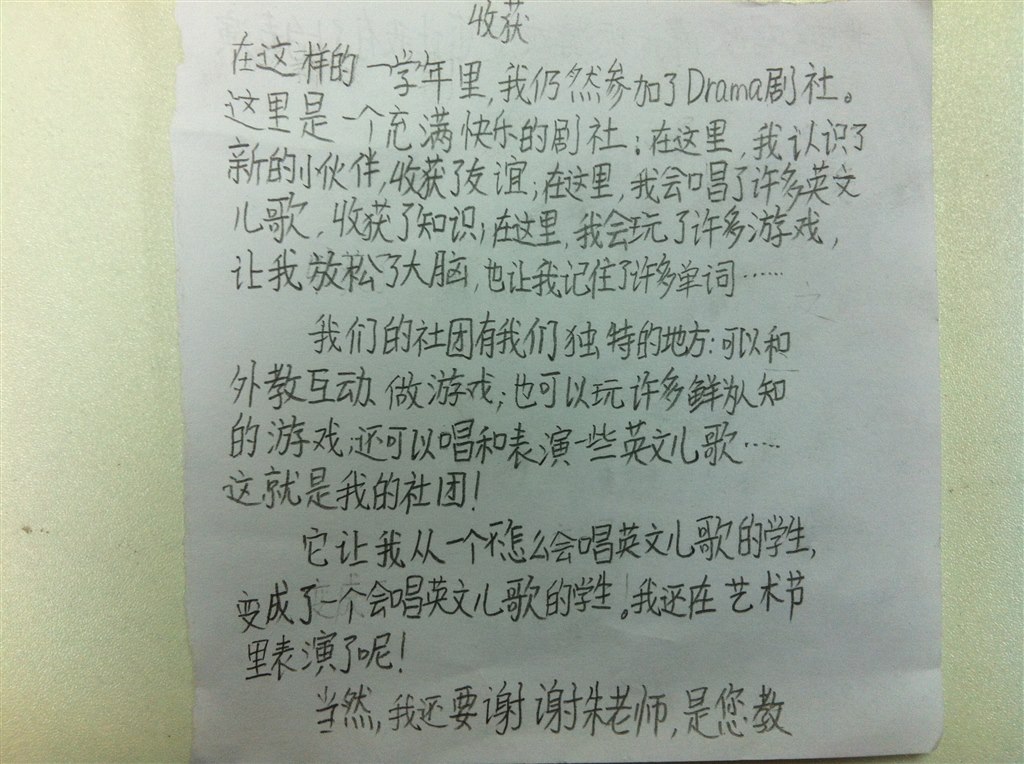 收获
在这样的一学年里,我仍然参加了Drama剧社。
这里是一个充满快乐的剧社;在这里,我认识了
新的小伙伴,收获了友谊;在这里,我会唱了许多英文
儿歌,收获了知识;在这里,我会玩了许多游戏,
让我放松了大脑,也让我记住了许多单词……
我们的社团有我们独特的地方:可以和
外教互动、做游戏;也可以玩许多鲜为人知
的游戏;还可以唱和表演一些英文儿歌……
这就是我的社团!
它让我从一个不怎么会唱英文儿歌的学生,
变成了一个会唱英文儿歌的学生。我还在艺术节
里表演了呢!
当然,我还要谢谢朱老师,是您教